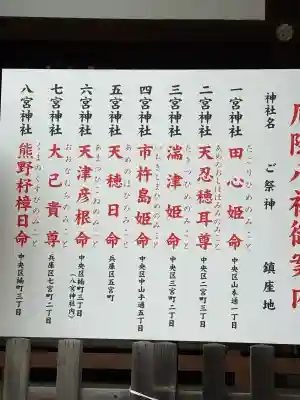 厄除八社御案内
神社名 ご祭神 鎮座地
一宮神社 田心姫命 たごりひめのみこと 中央区山本通一丁目
二宮神社 天忍穂耳尊 あめのおしほみみのみこと 中央区二宮町三丁目
三宮神社 湍津姫命 たきつひめのみこと 中央区三宮町二丁目
四宮神社 市杵島姫命 いちきしまひめのみこと 中央区中山手通五丁目
五宮神社 天穂日命 あめのほひのみこと 兵庫区五宮町
六宮神社 天津彦根命 あまつひこねのみこと 中央区楠町三丁目
(八宮神社内)
七宮神社 大己貴尊 おおなむちのみこと 兵庫区七宮町二丁目
八宮神社 熊野杼樟日命 くまのくすびのみこと 中央区楠町三丁目